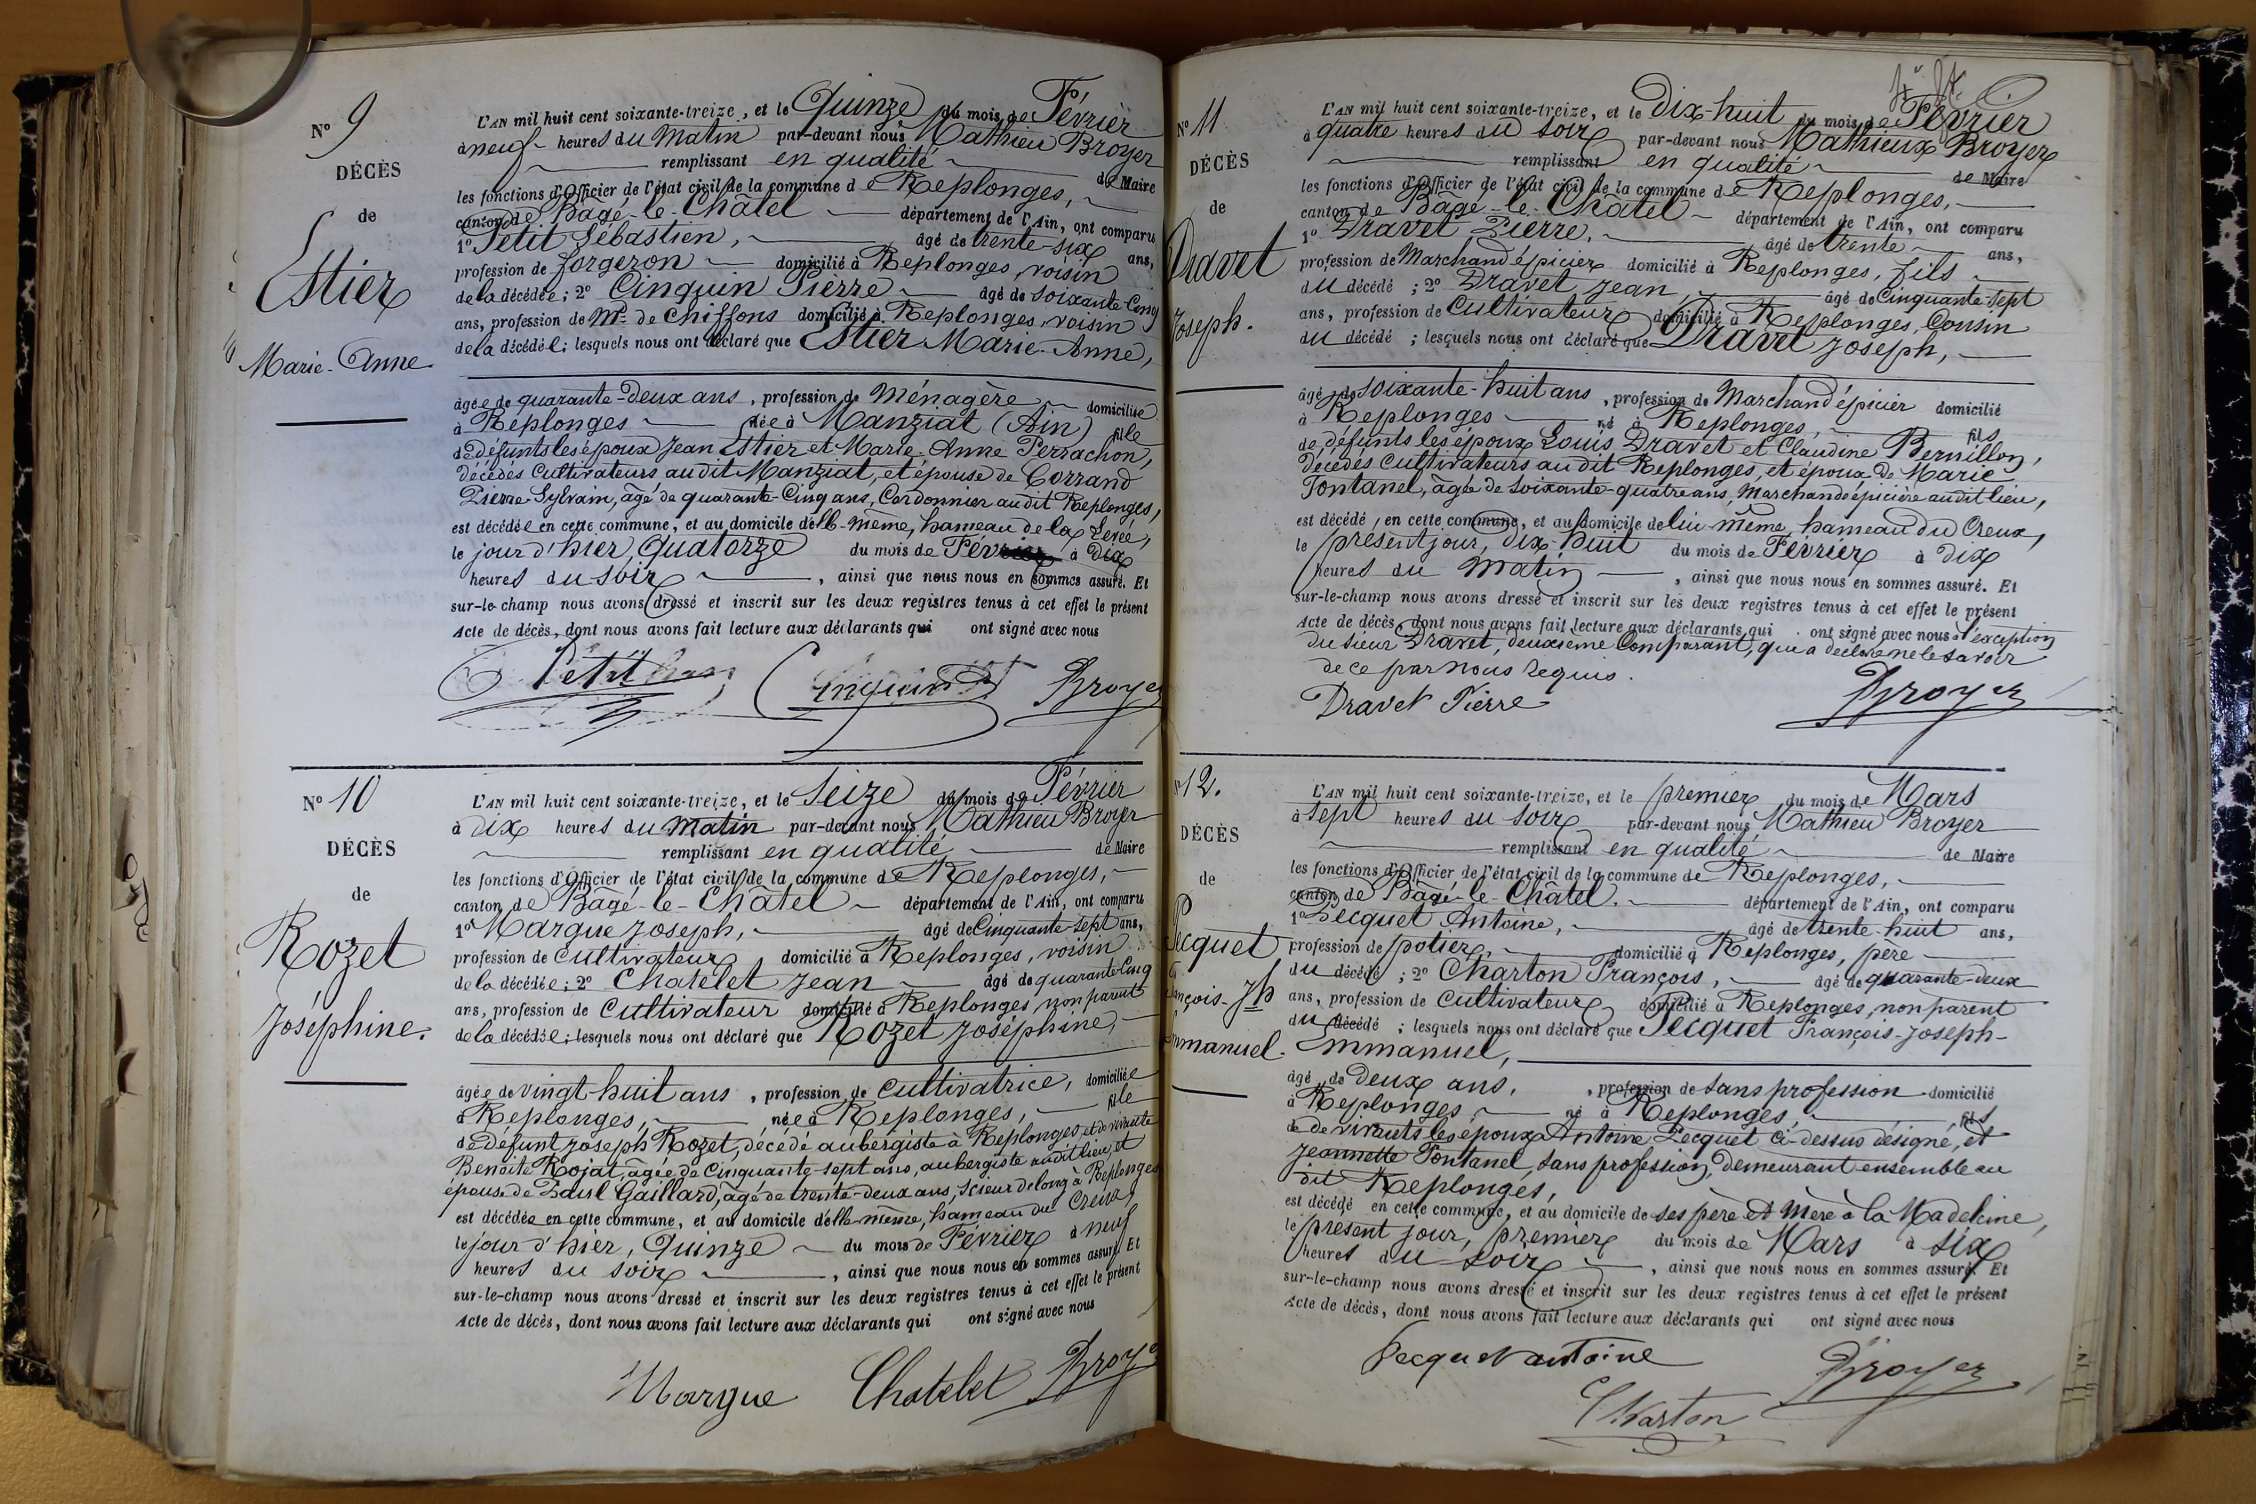 N° 9
DÉCÈS
de
Estier
Marie-Anne
L'AN mil huit cent soixante-treize, et le Quinze du mois de Février
à neuf heures du Matin par-devant nous Mathieu Broyer
remplissant en qualité de Maire
les fonctions d'Officier de l'état civil de la commune de Replonges,
canton de Bâgé-le-Châtel département de l'Ain, ont comparu
1° Petit Sébastien, âgé de trente-six ans,
profession de forgeron domicilié à Replonges, voisin
de la décédée ; 2° Cinquin Pierre âgé de soixante-Cinq
ans, profession de Md de Chiffons domicilié à Replonges, voisin
de la décédée ; lesquels nous ont déclaré que Estier Marie-Anne,
âgée de quarante-deux ans, profession de Ménagère domiciliée
à Replonges née à Manziat (Ain) fille
de défunts les époux Jean Estier et Marie-Anne Perrachon,
décédés Cultivateurs audit Manziat, et épouse de Corrand
Pierre-Sylvain, âgé de quarante-Cinq ans, Cordonnier audit Replonges,
est décédée en cette commune, et au domicile d'elle-même, hameau de la Levée,
le jour d'hier, Quatorze du mois de Février à dix
heures du soir, ainsi que nous nous en sommes assuré. Et
sur-le-champ nous avons dressé et inscrit sur les deux registres tenus à cet effet le présent
Acte de décès, dont nous avons fait lecture aux déclarants qui ont signé avec nous
Petit Cinquin Broyer
N° 10
DÉCÈS
de
Rozet
Joséphine.
L'AN mil huit cent soixante-treize, et le Seize du mois de Février
à dix heures du Matin par-devant nous Mathieu Broyer
remplissant en qualité de Maire
les fonctions d'Officier de l'état civil de la commune de Replonges,
canton de Bâgé-le-Châtel département de l'Ain, ont comparu
1° Margue Joseph, âgé de Cinquante-sept ans,
profession de Cultivateur domicilié à Replonges, voisin
de la décédée ; 2° Chatelet Jean âgé de quarante-Cinq
ans, profession de Cultivateur domicilié à Replonges non parent
de la décédée ; lesquels nous ont déclaré que Rozet Joséphine,
âgée de vingt-huit ans, profession de Cultivatrice, domiciliée
à Replonges, née à Replonges, fille
de défunt Joseph Rozet, décédé aubergiste à Replonges et de vivante
Benoite Rojat, âgée de Cinquante-sept ans, aubergiste audit lieu, et
épouse de Paul Gaillard, âgé de trente-deux ans, Scieur de long à Replonges
est décédée en cette commune, et au domicile d'elle-même, hameau du Creux,
le jour d'hier, Quinze du mois de Février à neuf
heures du soir, ainsi que nous nous en sommes assuré. Et
sur-le-champ nous avons dressé et inscrit sur les deux registres tenus à cet effet le présent
Acte de décès, dont nous avons fait lecture aux déclarants qui ont signé avec nous
Margue Chatelet Broyer
N° 11
DÉCÈS
de
Dravet
Joseph.
L'AN mil huit cent soixante-treize, et le Dix-huit du mois de Février
à quatre heures du soir par-devant nous Mathieux Broyer
remplissant en qualité de Maire
les fonctions d'Officier de l'état civil de la commune de Replonges,
canton de Bâgé-le-Châtel département de l'Ain, ont comparu
1° Dravet Pierre, âgé de trente ans,
profession de Marchand épicier domicilié à Replonges, fils
du décédé ; 2° Dravet Jean, âgé de Cinquante-sept
ans, profession de Cultivateur domicilié à Replonges, Cousin
du décédé ; lesquels nous ont déclaré que Dravet Joseph,
âgé de soixante-huit ans, profession de Marchand épicier domicilié
à Replonges né à Replonges, fils
de défunts les époux Louis Dravet et Claudine Bernillon,
décédés Cultivateurs audit Replonges, et époux de Marie
Fontanel, âgée de soixante-quatre ans, Marchande épicière audit lieu,
est décédé, en cette commune, et au domicile de lui-même, hameau du Creux,
le présent jour, dix-huit du mois de Février à dix
heures du matin, ainsi que nous nous en sommes assuré. Et
sur-le-champ nous avons dressé et inscrit sur les deux registres tenus à cet effet le présent
Acte de décès, dont nous avons fait lecture aux déclarants qui ont signé avec nous à l'exception
du sieur Dravet, deuxième Comparant, qui a déclaré ne le savoir
de ce par nous requis.
Dravet Pierre Broyer
12.
DÉCÈS
de
Pecquet
François-Jh
Emmanuel.
L'AN mil huit cent soixante-treize, et le premier du mois de Mars
à sept heures du soir par-devant nous Mathieu Broyer
remplissant en qualité de Maire
les fonctions d'Officier de l'état civil de la commune de Replonges,
canton de Bâgé-le-Châtel. département de l'Ain, ont comparu
1° Pecquet Antoine, âgé de trente-huit ans,
profession de potier, domicilié à Replonges, père
du décédé ; 2° Charton François, âgé de quarante-deux
ans, profession de Cultivateur domicilié à Replonges, non parent
du décédé ; lesquels nous ont déclaré que Pecquet François-Joseph-
Emmanuel,
âgé de Deux ans, profession de sans profession domicilié
à Replonges né à Replonges, fils
de vivants les époux Antoine Pecquet ci-dessus désigné, et
Jeannette Fontanel, sans profession, demeurant ensemble au
dit Replonges,
est décédé en cette commune, et au domicile de ses père et mère à la Madeleine,
le présent jour, premier du mois de Mars à six
heures du soir, ainsi que nous nous en sommes assuré. Et
sur-le-champ nous avons dressé et inscrit sur les deux registres tenus à cet effet le présent
Acte de décès, dont nous avons fait lecture aux déclarants qui ont signé avec nous
Pecquet antoine Broyer
Charton